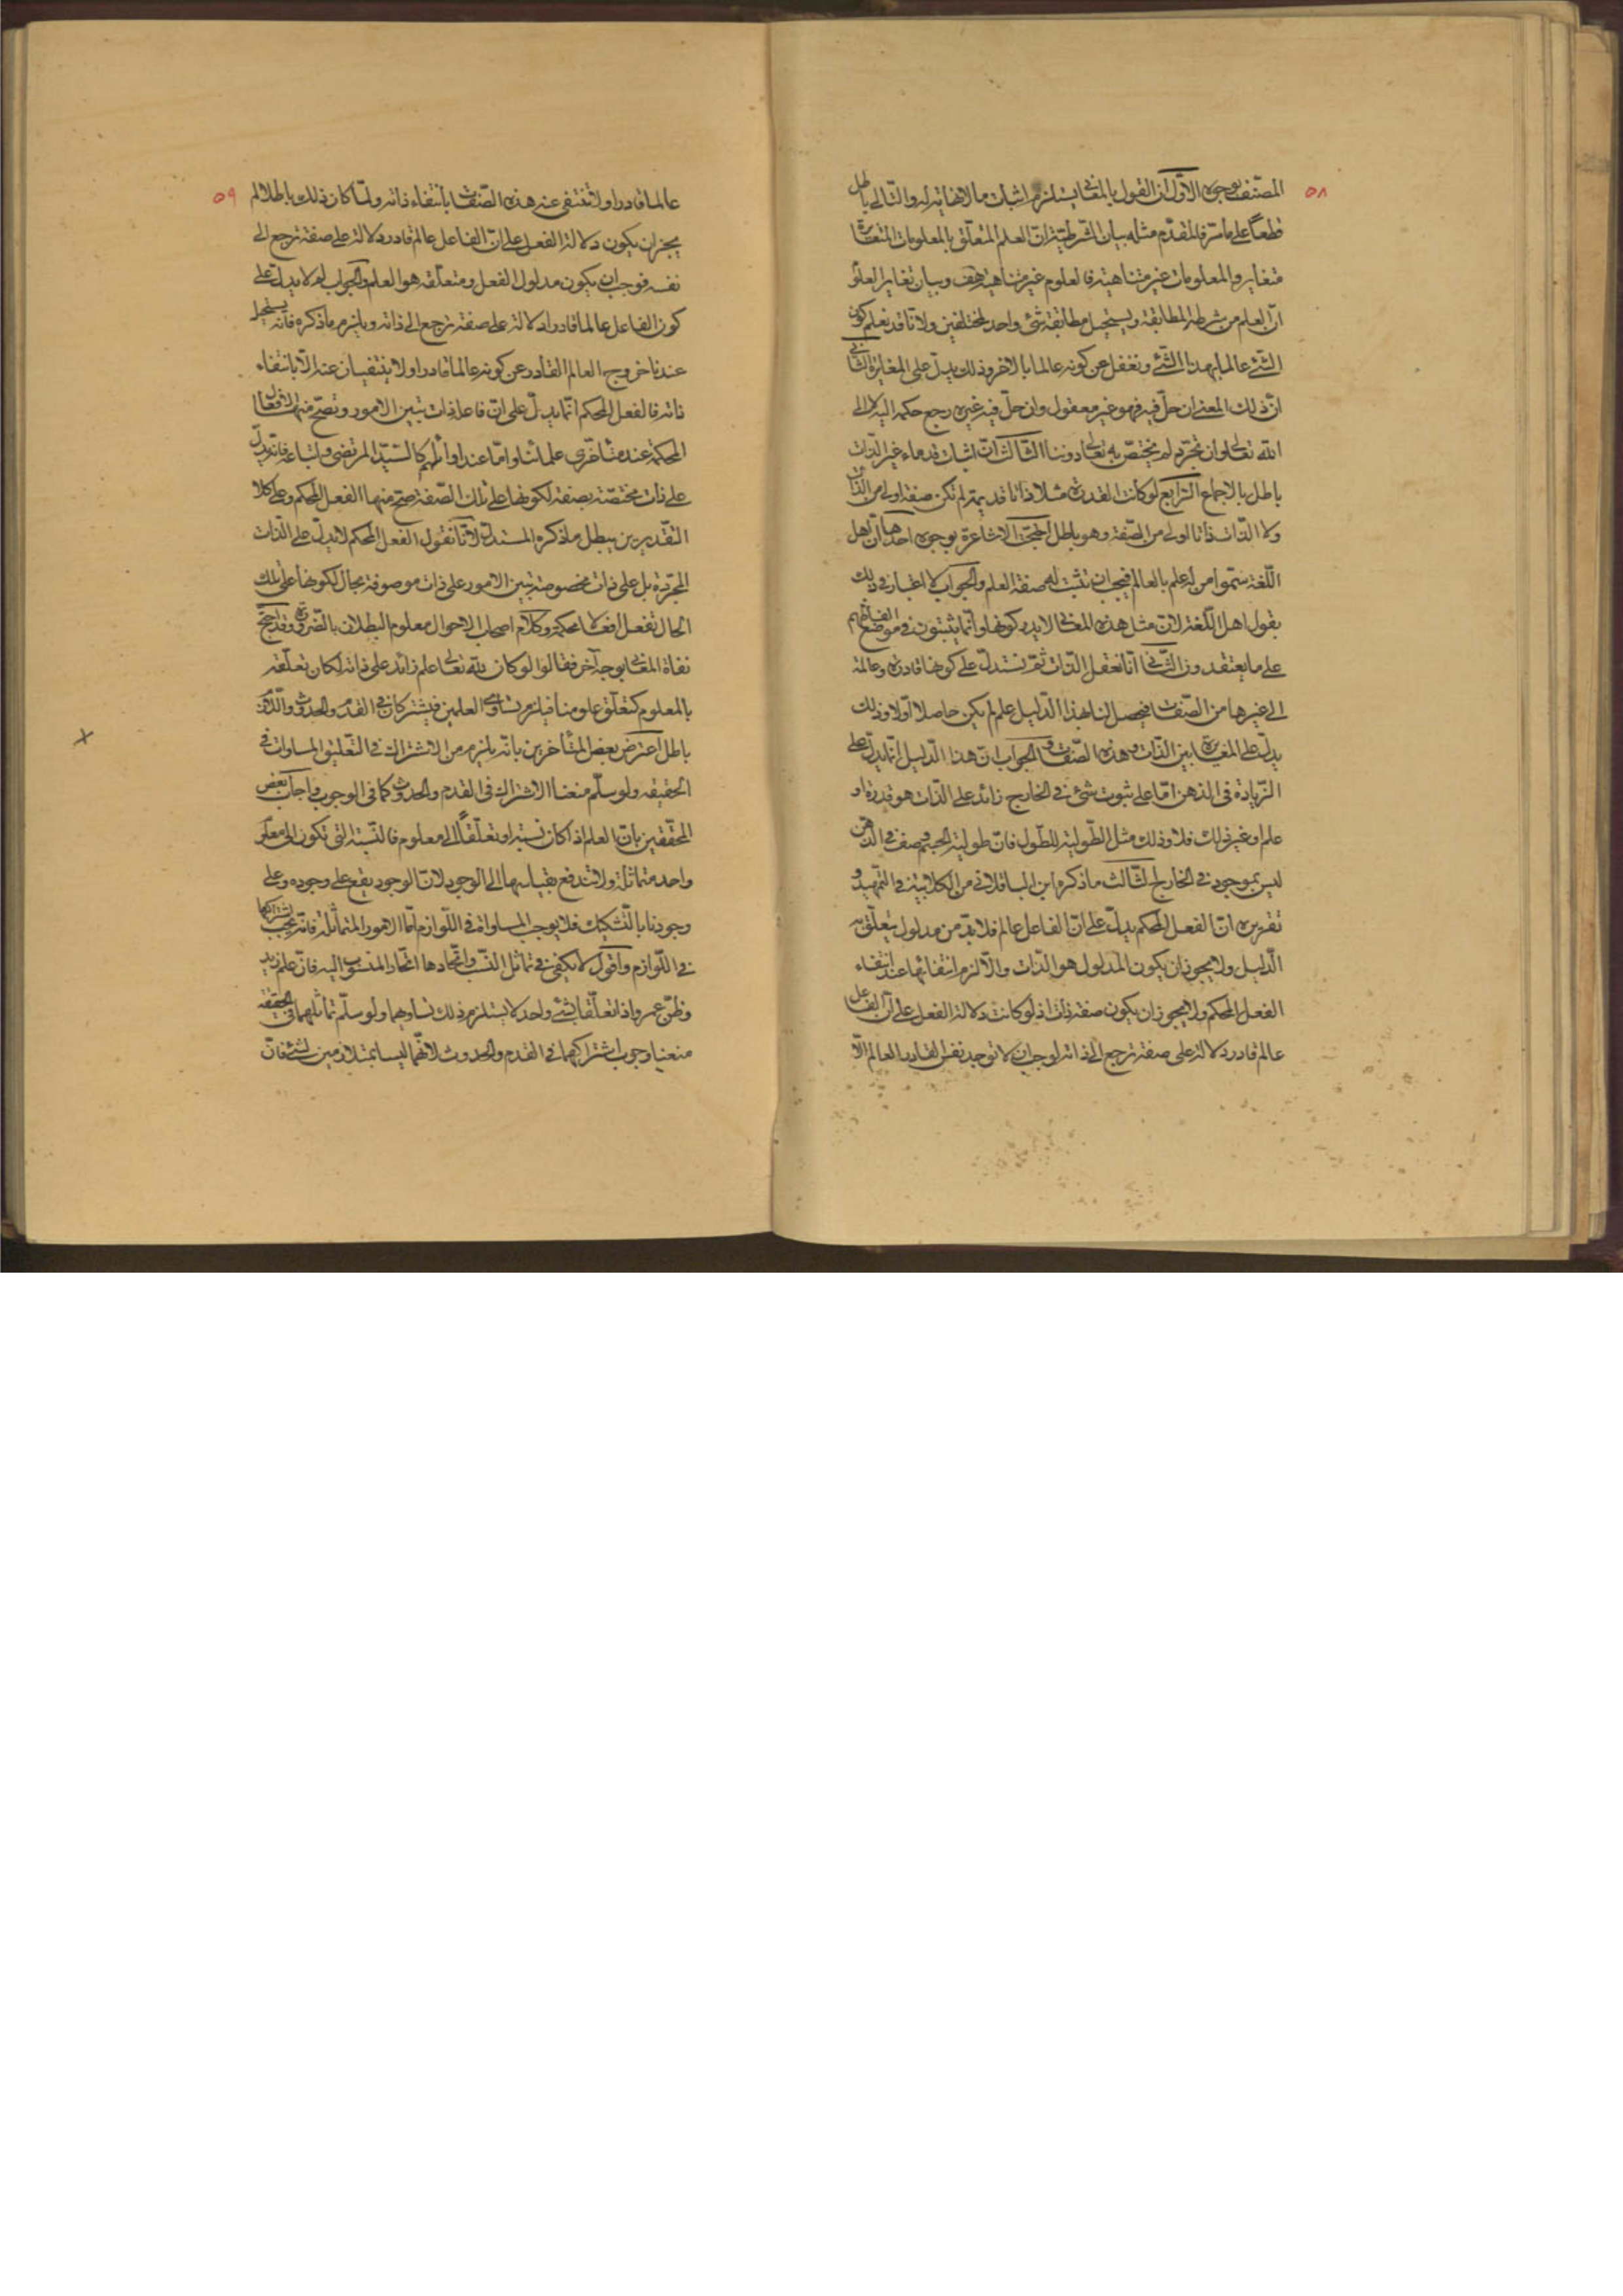 ٥٨
المصنف بوجوه الاول ان القول بالمعاني يستلزم اثبات ما لا نهاية له والتالي باطل
قطعا على ما مر فالمقدم مثله بيان الشرطية ان العلم المتعلق بالمعلومات المتغايرة
متغاير والمعلومات غير متناهية فالعلوم غير متناهية هف وبيان تغاير العلو
ان العلم من شرطه المطابقة ويستحيل مطابقة شئ واحد لمختلفين ولانا قد نعلم كون
الشئ عالما بهذا الشئ ونغفل عن كونه عالما بالاخر وذلك يدل على المغايرة الثاني
ان ذلك المعنى ان حل فيه فهو غير معقول وان حل في غيره رجع حكمه اليه لا الى
الله تعالى وان تجرد لم يختص به تعالى دوننا الثالث ان اثبات قدماء غير الذات
باطل بالاجماع الرابع لو كانت القدرة مثلا ذاتا قديمة لم تكن صفة اولى من الذات
ولا الذات ذاتا اولى من الصفة وهو باطل احتجت الاشاعرة بوجوه احدها ان اهل
اللغة سموا من له علم بالعالم فيجب ان تثبت له صفة العلم والجواب لا اعتبار في ذلك
بقول اهل اللغة لان مثل هذه المعاني لا يدركونها وانما يثبتون في موضع الفاظهم
على ما يعتقدون الثاني انا نعقل الذات ثم نستدل على كونها قادرة وعالمة
الى غيرها من الصفات فيحصل لنا بهذا الدليل علم لم يكن حاصلا اولا وذلك
يدل على المغايرة بين الذات وهذه الصفات والجواب ان هذا الدليل انما يدل على
الزيادة في الذهن اما على ثبوت شئ في الخارج زائد على الذات هو قدرة او
علم او غير ذلك فلا وذلك مثل الطولية للطول فان طولية الجسم وصف في الذهن
ليس بموجود في الخارج الثالث ما ذكره ابن الباقلاني من الكلابية في التمهيد و
تقريره ان الفعل المحكم يدل على ان الفاعل عالم فلا بد من مدلول يتعلق به
الدليل ولا يجوز ان يكون المدلول هو الذات والا لزم انتفائها عند انتفاء
الفعل المحكم ولا يجوز ان يكون صفة ذات اذ لو كانت دلالة الفعل على ان الفاعل
عالم قادر دلالة على صفة ترجع الى ذاته لوجب ان لا توجد نفس القادر العالم الا
٥٩
عالما قادرا ولا تنتفي عنه هذه الصفات بانتفاء ذاته ولما كان ذلك باطلا لم
يجز ان يكون دلالة الفعل على ان الفاعل عالم قادر دلالة على صفة ترجع الى
نفسه فوجب ان يكون مدلول الفعل ومتعلقه هو العلم والجواب لم لا يدل على
كون الفاعل عالما قادرا دلالة على صفة ترجع الى ذاته ويلزم ما ذكره فانه يستحيل
عندنا خروج العالم القادر عن كونه عالما قادرا ولا ينتفيان عنه الا بانتفاء
ذاته فالفعل المحكم انما يدل على ان فاعله ذات تبين الامور وتصح منها الافعال
المحكمة عند متأخري علمائنا واما عند اوائلهم كالسيد المرتضى واتباعه فانه يدل
على ذات مختصة بصفة لكونها على تلك الصفة صح منها الفعل المحكم وعلى كلا
التقديرين يبطل ما ذكره المستدل لانا نقول الفعل المحكم لا يدل على الذات
المجردة بل على ذات مخصوصة تبين الامور على ذات موصوفة بحال لكونها على تلك
الحال تفعل افعالا محكمة وكلام اصحاب الاحوال معلوم البطلان بالضرورة وقد احتج
نفاة المعاني بوجه آخر فقالوا لو كان لله تعالى علم زائد على ذاته لكان تعلقه
بالمعلوم كتعلق علومنا فيلزم تساوي العلمين فيشتركان في القدم والحدوث واللازم
باطل اعترض بعض المتأخرين بانه يلزم من الاشتراك في التعليق المساوات في
الحقيقة ولو سلم منعنا الاشتراك في القدم والحدوث كما في الوجوب واجاب بعض
المحققين بان العلم اذا كان نسبة او تعلقا الى معلوم فالنسبة التي تكون الى معلوم
واحد متماثلة ولا تندفع بقياسها الى الوجود لان الوجود يقع على وجوده وعلى
وجودنا بالتشكيك فلا يوجب المساواة في اللوازم اما الامور المتماثلة فانه يجب اشتراكها
في اللوازم واقول لا يكفي في تماثل النسب واتحادها اتحاد المنسوب اليه فان علم زيد
وظن عمرو اذا تعلقا بشئ واحد لا يستلزم ذلك تساويهما ولو سلم تماثلهما في الحقيقة
منعنا وجوب اشتراكهما في القدم والحدوث لانهما ليسا بمتلازمين لشئ فان